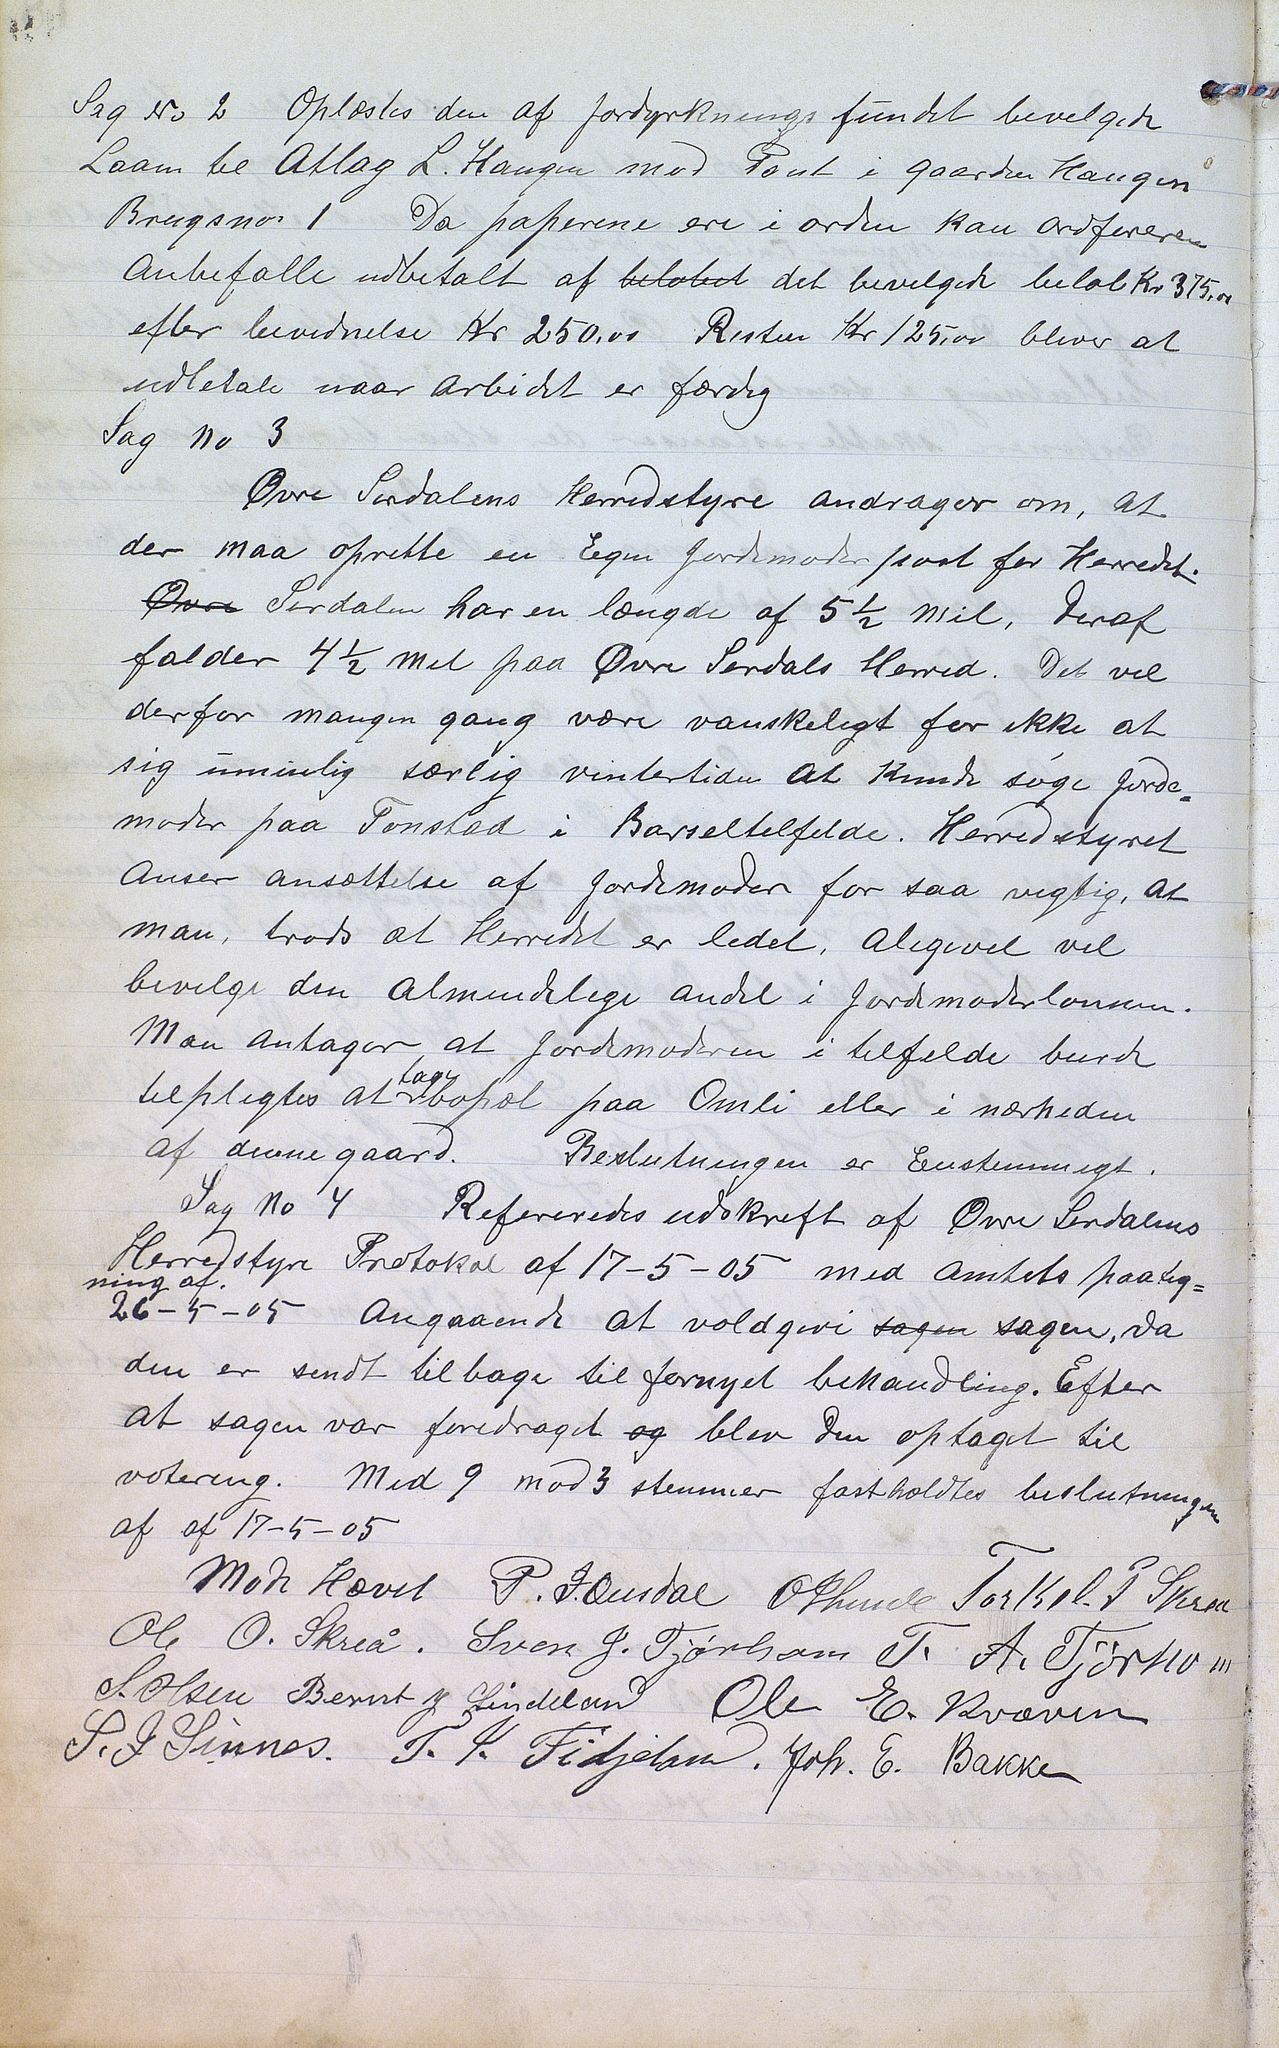 Sag No 2 Oplæstes den af Jordyrknings fundet bevelgede
Laam til Atlag L. Haugen mod Pant i gaarden Haugen
Brugsno. 1 Da paperene ere i orden kan ordføreren
Anbefalle udbetalt af beløbet det bevelgede beløb Kr 375,00
efter bevidnelse Kr 250,00 Resten Kr 125,00 bliver at
udbetale naar arbidet er færdig
Sag No 3
Øvre Sirdalens Herredstyre andrager om, at
der maa oprette en Egen Jordemoder post for Herredet.
Øvre Sirdalen har en længde af 5 1/2 Mil, deraf
falder 4 1/2 Mil paa Øvre Sirdals Herred. Det vel
derfor mangen gang være vanskeligt for ikke at
sig umulig særlig vintertiden at kunde søge Jorde=
moder paa Tonstad i Barseltelfelde. Herredstyret
Anser ansættelse af Jordemoder for saa vegtig, at
man, trods at Herredet er ledet, aligevel vel
bevelge den Almendelige andel i Jordemoderlønnen.
Man antager at Jordemoderen i telfelde burde
telplegtes at tage bopæl paa Omli eller i nærheden
af denne gaard. Beslutningen er Enstemmegt.
Sag No 4 Refereredes udskreft af Øvre Sirdalens
Herredstyre Protokol af 17-5-05 med Amtets paateg=
ning af.
26-5-05 Angaaende at voldgive sagen sagen, da
den er sendt tilbage til fornyet behandling. Efter
at sagen var foredraget og blev den optaget til
votering. Med 9 mod 3 stemmer fastholdtes beslutningen
af af 17-5-05
Møde Hævet P. J. Ousdal Torkel. P Skrea
Ole O. Skreå. Sven J. Tjørhom T. A. Tjørhom
S. Olsen Bernt J Lindeland Ole E. Kvæven
S. J Sinnes. T. T. Fidjeland. Joh. E. Bakken